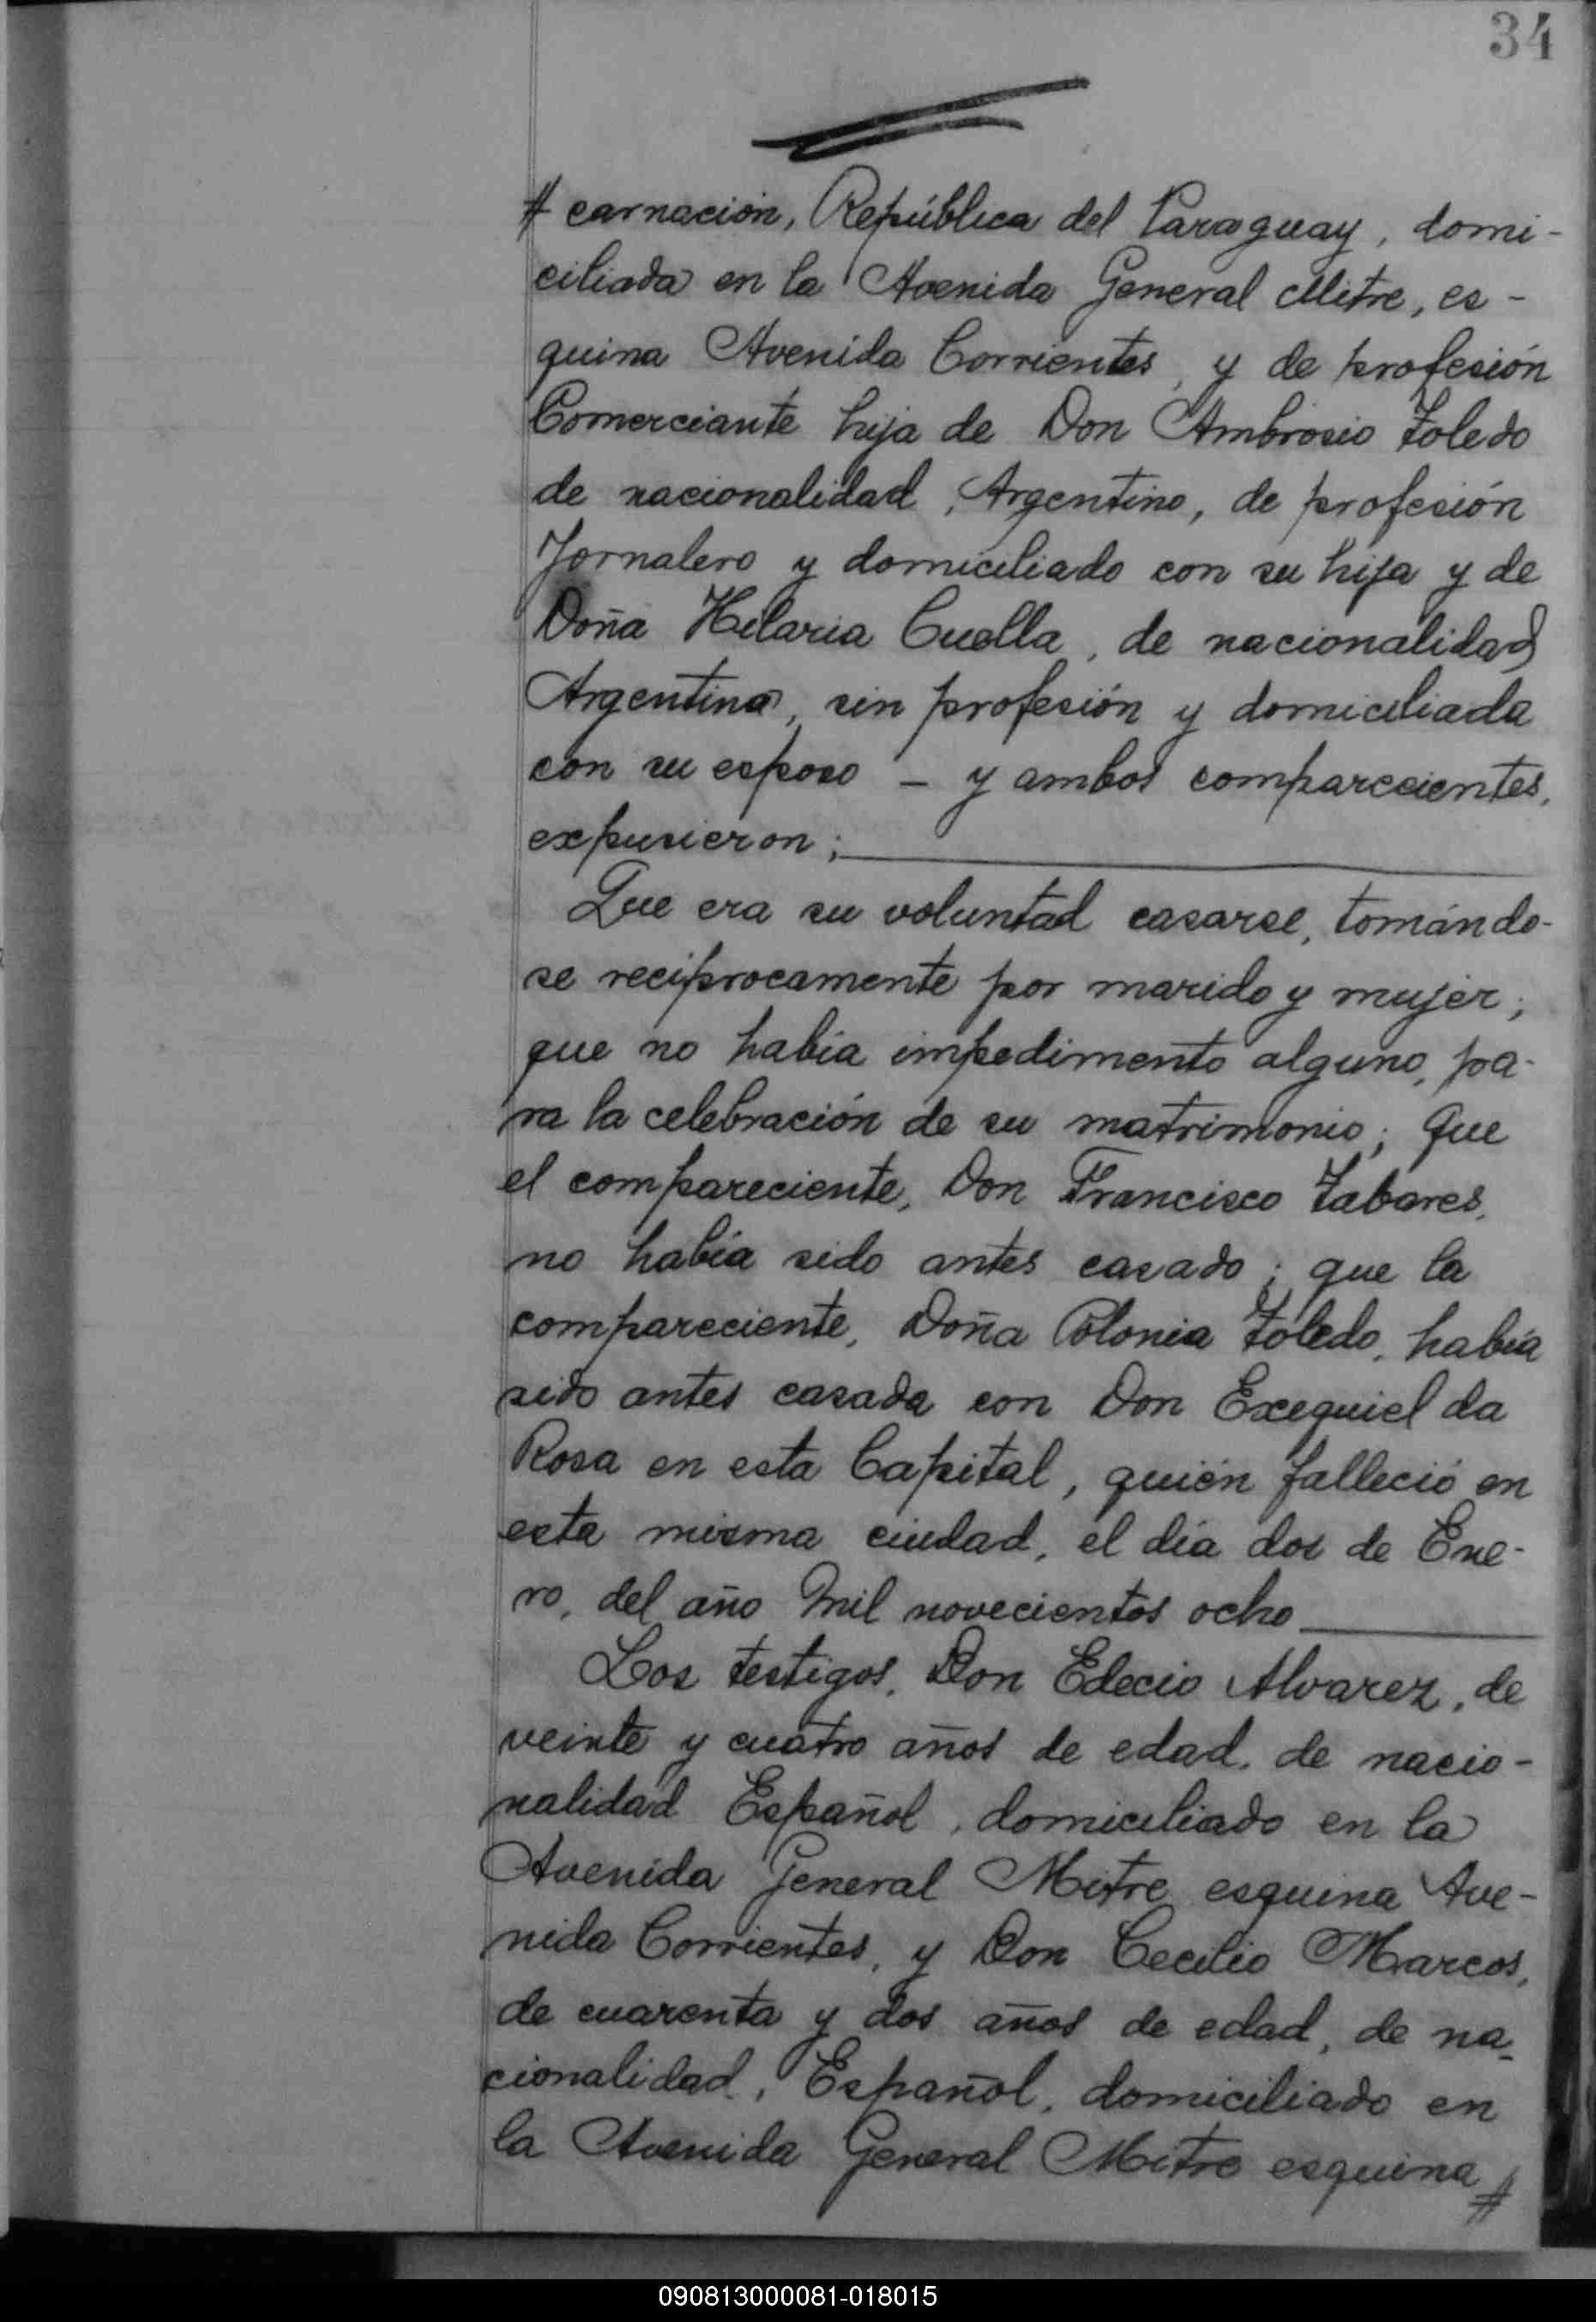 34
# carnación, República del Paraguay, domi-
ciliada en la Avenida General Mitre, es-
quina Avenida Corrientes, y de profesión
Comerciante hija de Don Ambrosio Toledo
de nacionalidad, Argentino, de profesión
Jornalero y domiciliado con su hija y de
Doña Hilaria Cuella, de nacionalidad
Argentina, sin profesión y domiciliada
con su esposo – y ambos comparecientes,
expusieron;
Que era su voluntad casarse, tomándo-
se recíprocamente por marido y mujer;
que no había impedimento alguno, pa-
ra la celebración de su matrimonio; que
el compareciente, Don Francisco Tabares,
no había sido antes casado; que la
compareciente, Doña Polonia Toledo, había
sido antes casada con Don Exequiel da
Rosa en esta Capital, quién falleció en
esta misma ciudad, el día dos de Ene-
ro, del año mil novecientos ocho
Los testigos, Don Edecio Alvarez, de
veinte y cuatro años de edad, de nacio-
nalidad Español, domiciliado en la
Avenida General Mitre esquina Ave-
nida Corrientes, y Don Cecilio Marcos,
de cuarenta y dos años de edad, de na-
cionalidad, Español, domiciliado en
la Avenida General Mitre esquina #
090813000081-018015